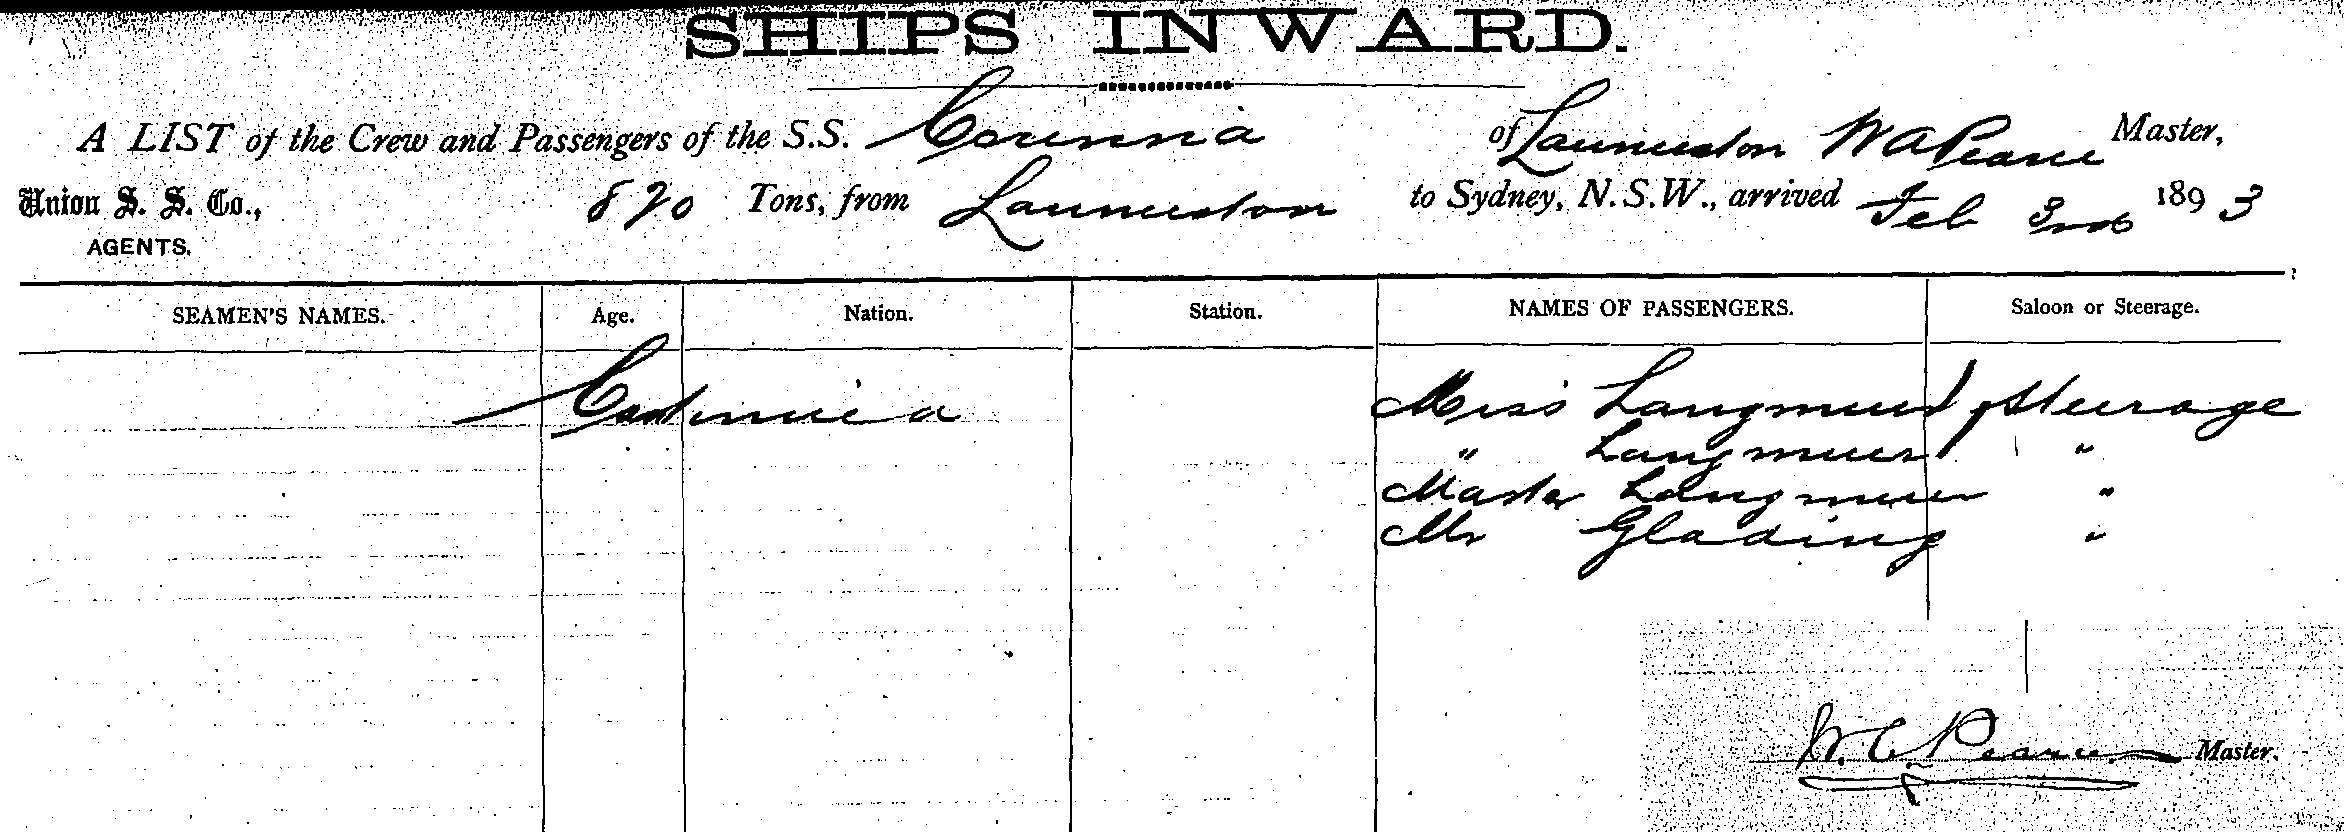 SHIPS INWARD.
A LIST of the Crew and Passengers of the S.S. Corinna of Launceston W A Pearce Master,
Union S. S. Co., AGENTS. 820 Tons, from Launceston to Sydney, N.S.W., arrived Feb 3rd 1893
SEAMEN'S NAMES. Age. Nation. Station. NAMES OF PASSENGERS. Saloon or Steerage.
Miss Langmuir Steerage
" Langmuir "
Master Langmuir "
Mr Glading "
Pearce Master.